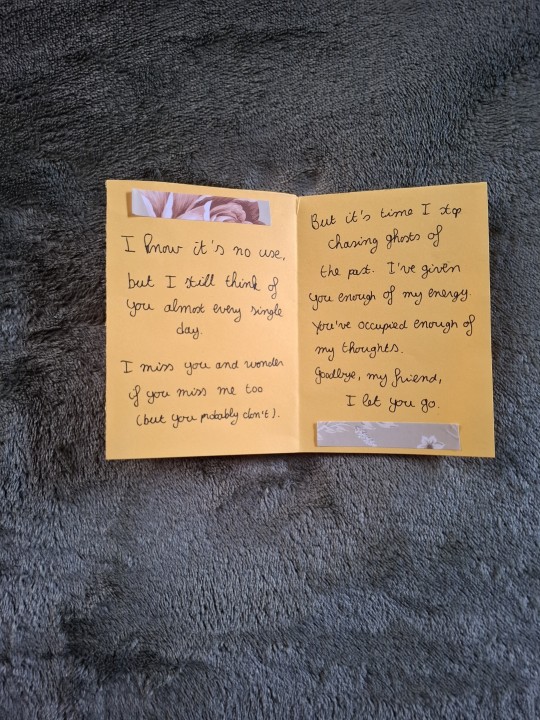 I know it's no use,
but I still think of
you almost every single
day.
I miss you and wonder
if you miss me too
(but you probably don't).
But it's time I stop
chasing ghosts of
the past. I've given
you enough of my energy.
You've occupied enough of
my thoughts.
Goodbye, my friend,
I let you go.